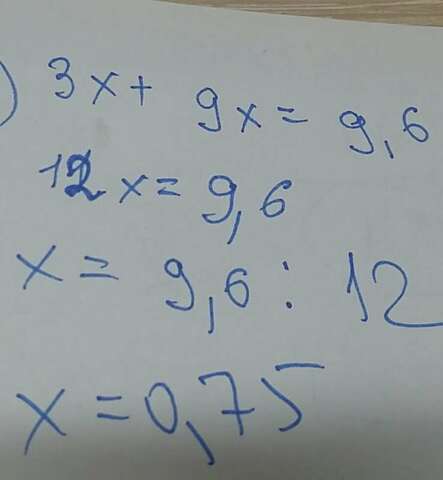 ) 3x+ 9x= 9,6
12x= 9,6
x= 9,6 : 12
x=0,75